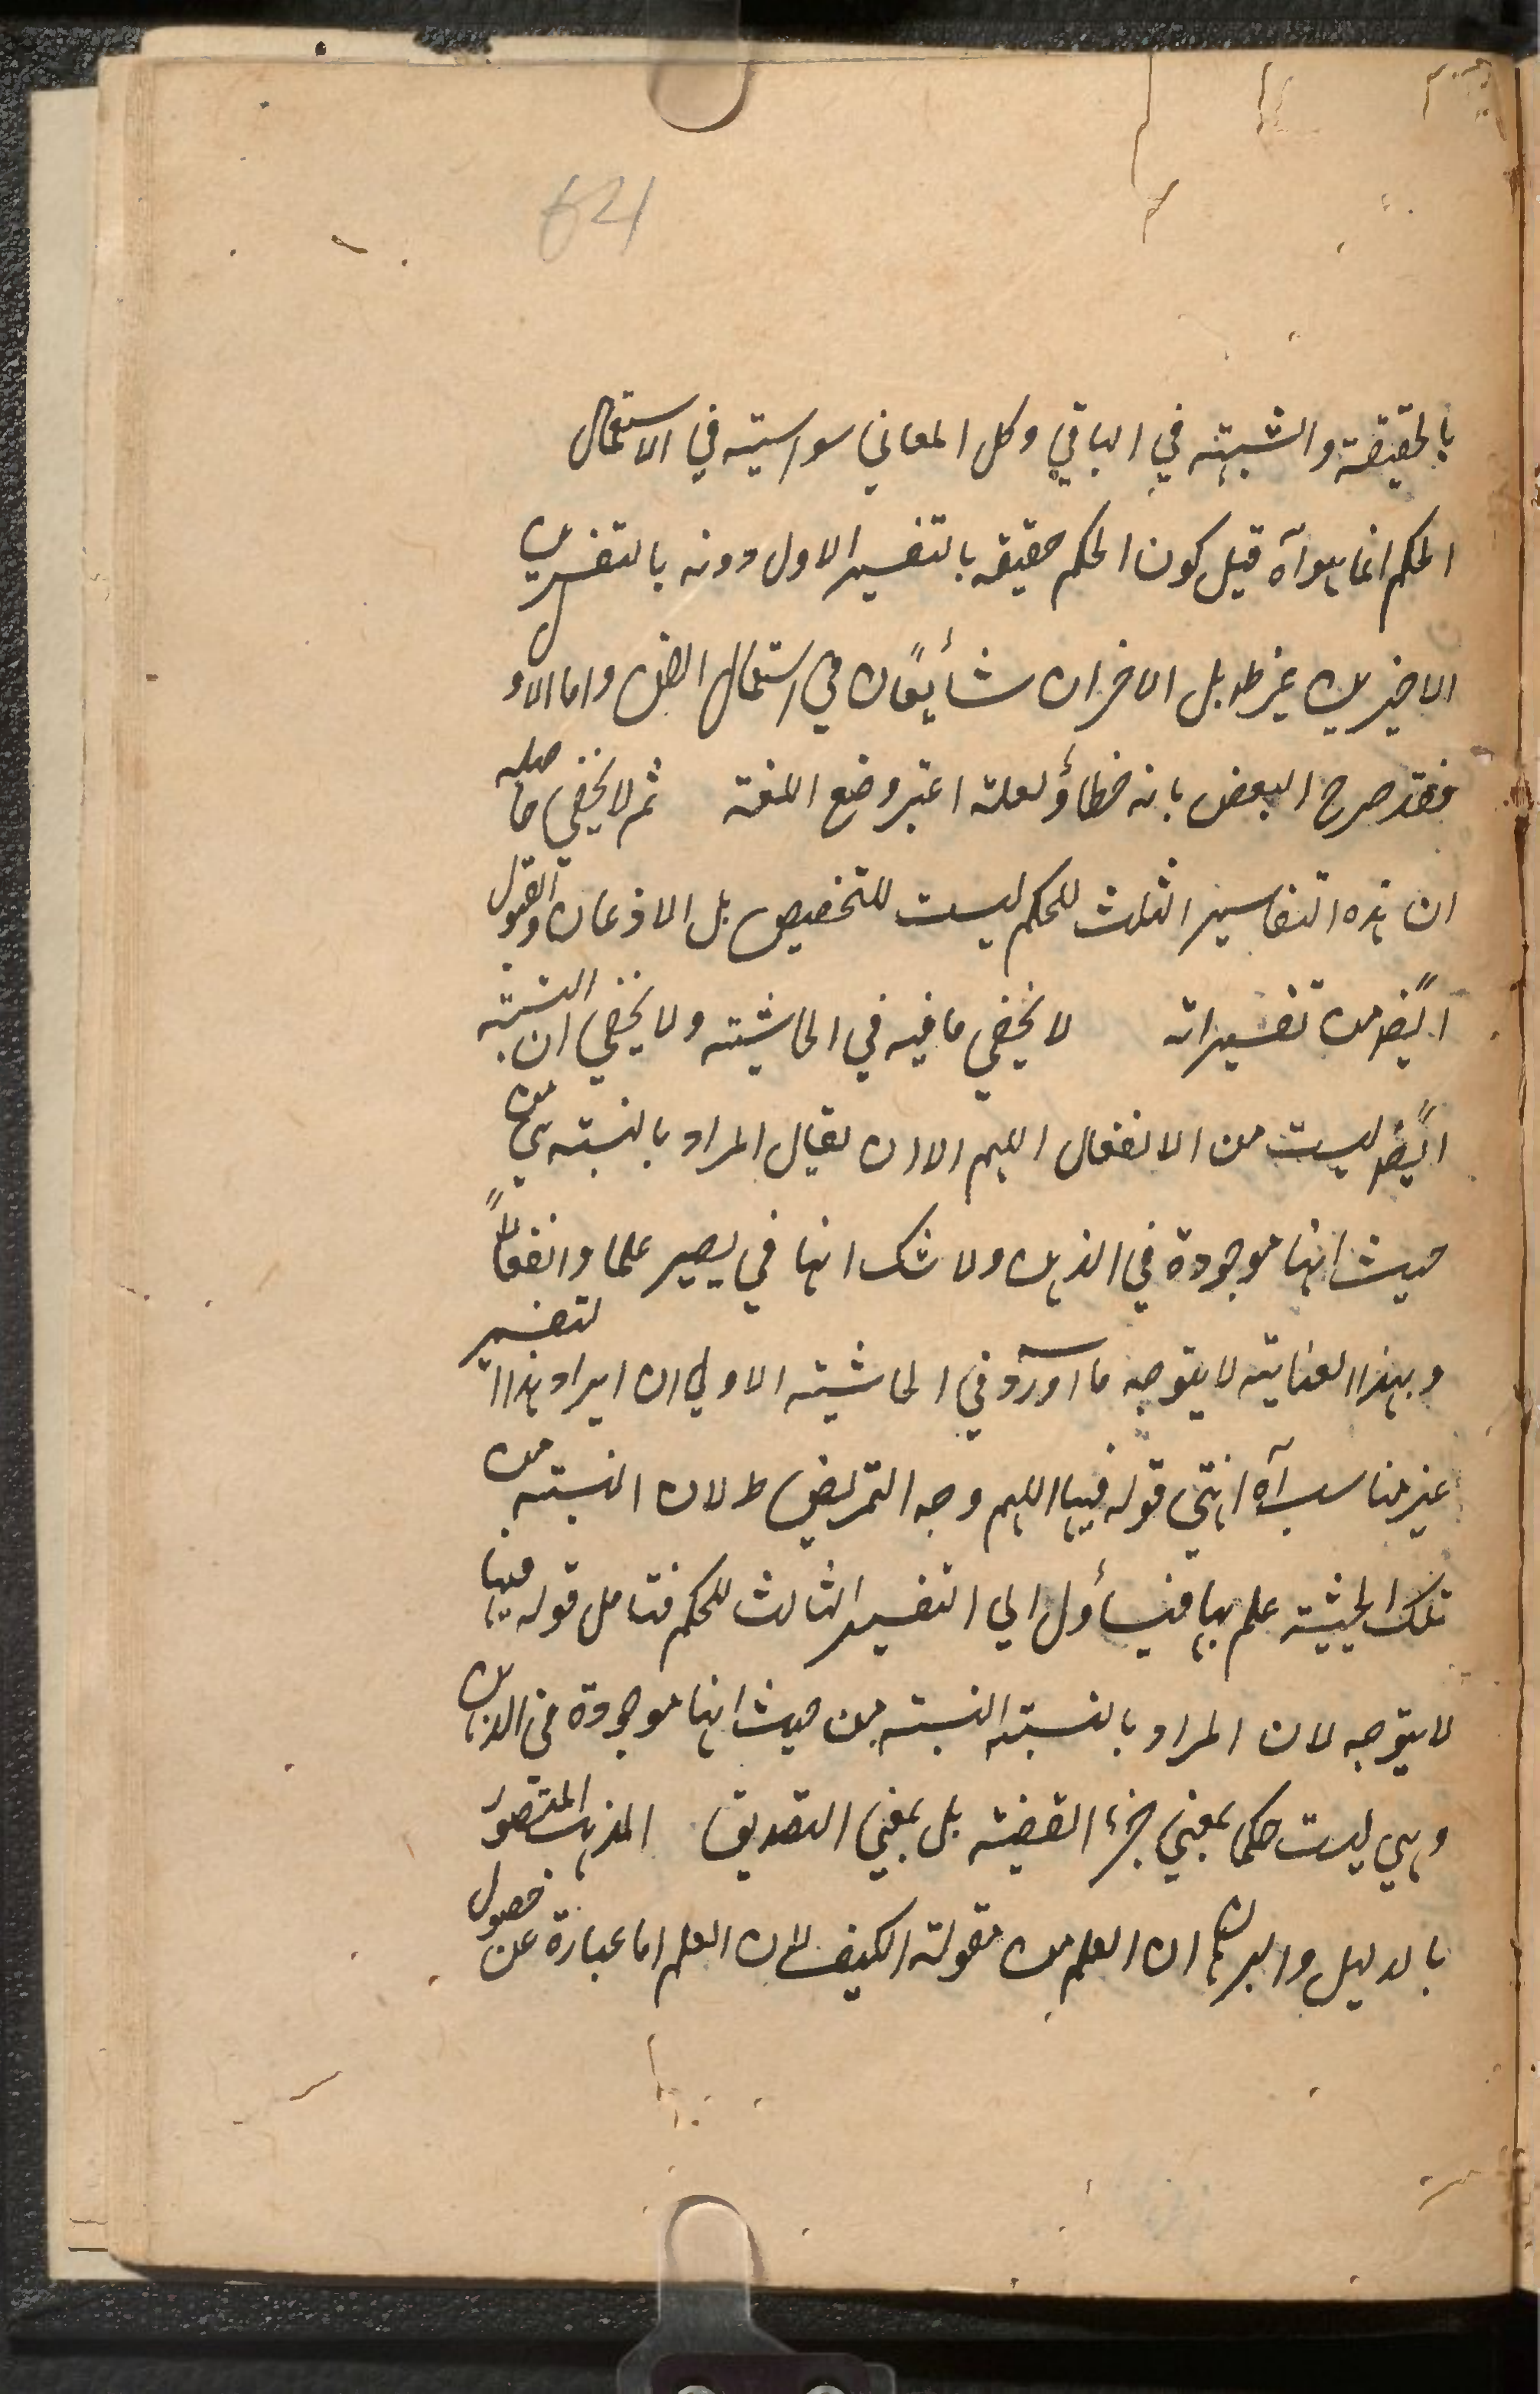 64
بالحقيقة والشبهته في الباقي وكل المعاني سواسيته في الاستعمال
الحكم انما هو آه قيل كون الحكم حقيقة بالتفسير الاول دونه بالتفسيرين
الاخيرين غير ظ بل الاخران شائعان في استعمال الفن واما الاول
فقد صرح البعض بانه خطاؤ لعلته اعتبر وضع اللغة ثم لا يخفى حاصله
ان هذه التفاسير الثلث للحكم ليست للتخصيص بل الاذعان والقبول
ايضًا من تفسيراته لا يخفى ما فيه في الحاشيته ولا يخفى ان النسبته
ايضًا ليست من الانفعال اللهم الا ان يقال المراد بالنسبته هي من
حيث انها موجودة في الذهن ولا شك انها في يصير علما وانفعالًا
وبهذا العنايته لا يتوجه ما اورد في الحاشيته الاولى ان ايراد هذا التفسير
غير مناسب آه انتهى قوله فيها اللهم وجه التمريض ط لان النسبته من
تلك الحيثيته علم بها فيأول الى التفسير الثالث للحكم فتامل قوله فيها
لا يتوجه لان المراد بالنسبته النسبته من حيث انها موجودة في الذهن
وهي ليست حكما بمعنى جزء القضيته بل بمعنى التصديق المذهب المنصور
بالدليل والبرهان ان العلم من مقولته الكيف لان العلم اما عبارة عن حصول